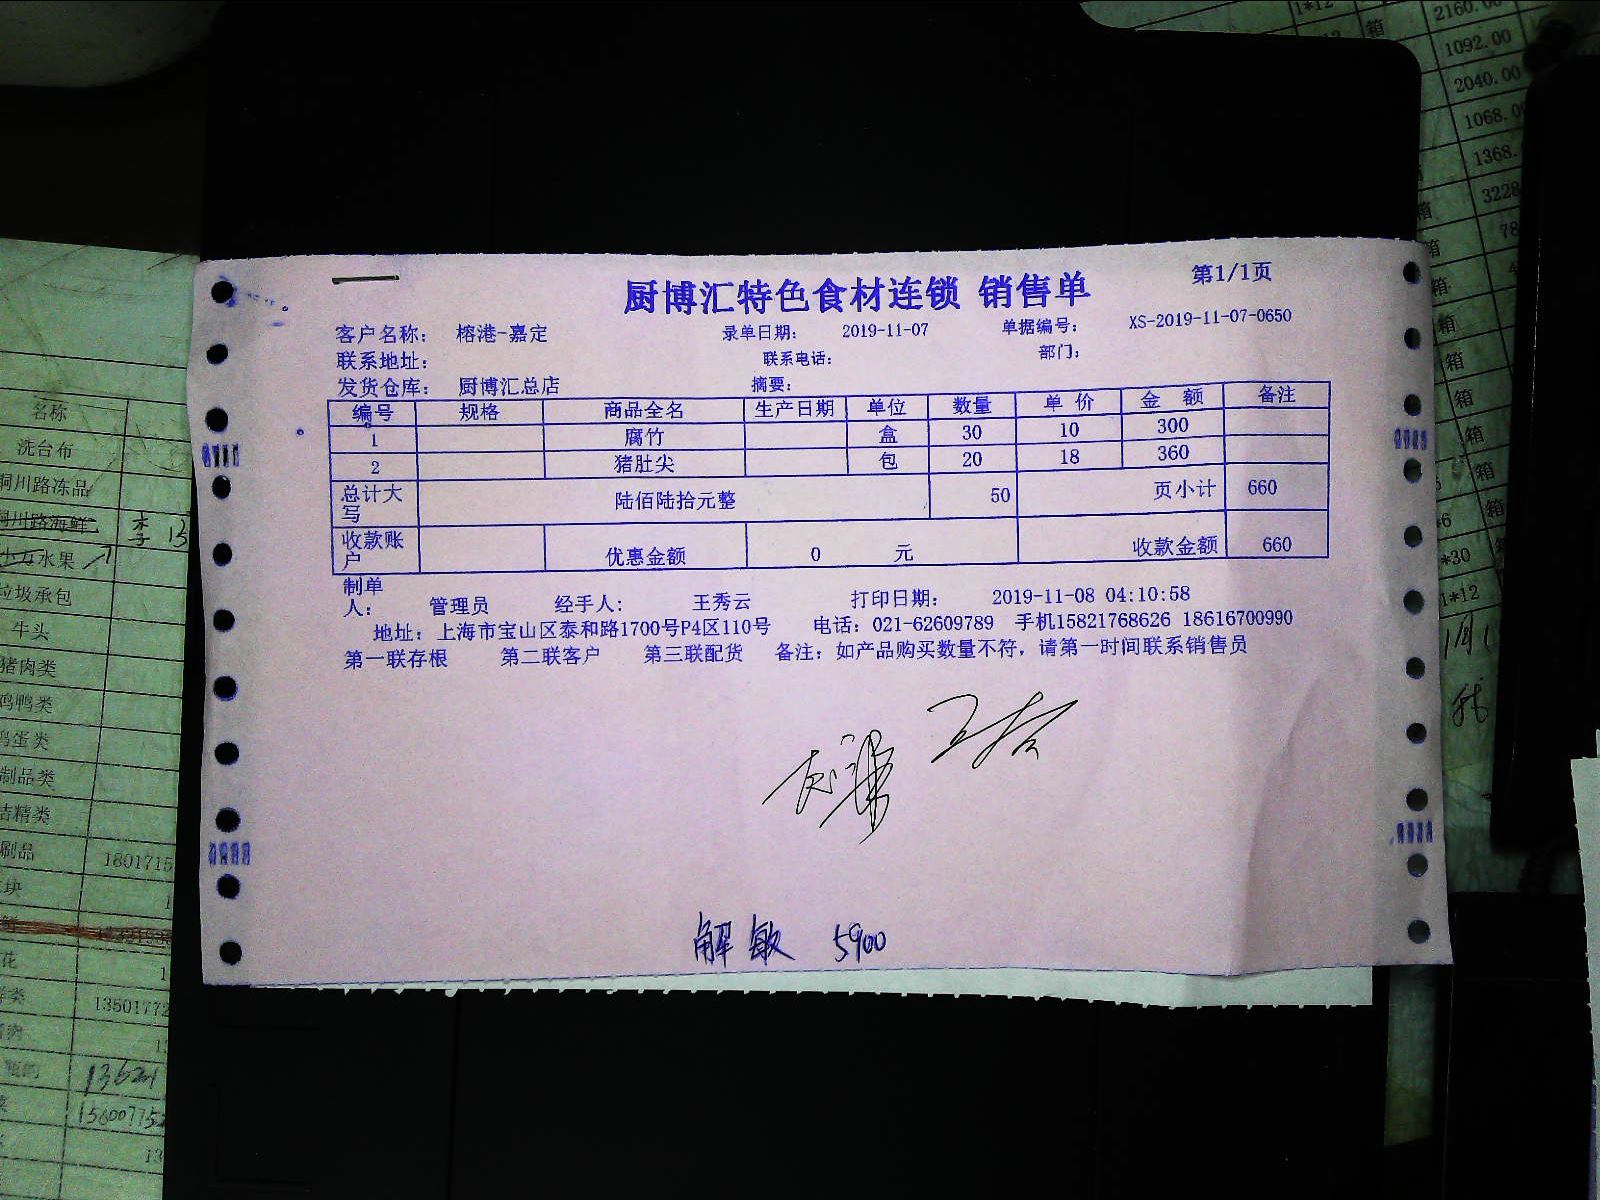 厨博汇特色食材连锁 销售单 第1/1页
客户名称： 榕港-嘉定 录单日期： 2019-11-07 单据编号： XS-2019-11-07-0650
联系地址： 联系电话： 部门：
发货仓库： 厨博汇总店 摘要：
编号 规格 商品全名 生产日期 单位 数量 单 价 金 额 备注
1 腐竹 盒 30 10 300
2 猪肚尖 包 20 18 360
总计大写 陆佰陆拾元整 50 页小计 660
收款账户 优惠金额 0 元 收款金额 660
制单人： 管理员 经手人： 王秀云 打印日期： 2019-11-08 04:10:58
地址：上海市宝山区泰和路1700号P4区110号 电话：021-62609789 手机15821768626 18616700990
第一联存根 第二联客户 第三联配货 备注：如产品购买数量不符，请第一时间联系销售员
解敏 5900
名称
洗台布
铜川路冻品
铜川路海鲜 李 13
水果
垃圾承包
牛头
猪肉类
鸡鸭类
鸡蛋类
制品类
洁精类
刷品 1801715
块
花
13501772
13621
15600775
13
1*12 箱 2160.00
1092.00
2040.00
1068.0
1368.
3228
78
箱
箱
箱
箱
箱
箱
箱
*30
1*12